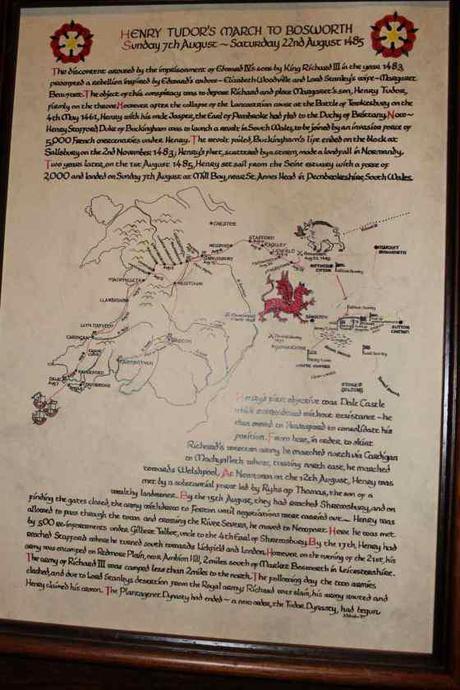 HENRY TUDOR'S MARCH TO BOSWORTH
Sunday 7th August ~ Saturday 22nd August 1485
The discontent aroused by the imprisonment of Edward IV's sons by King Richard III in the year 1483,
prompted a rebellion inspired by Edward's widow ~ Elizabeth Woodville and Lord Stanley's wife ~ Margaret
Beaufort. The object of this conspiracy was to depose Richard and place Margaret's son, Henry Tudor,
firmly on the throne. However after the collapse of the Lancastrian cause at the Battle of Tewkesbury on the
4th May 1461, Henry with his uncle Jasper, the Earl of Pembroke had fled to the Duchy of Brittany. Now ~
Henry Stafford Duke of Buckingham was to launch a revolt in South Wales, to be joined by an invasion force of
5,000 French mercenaries under Henry. The revolt failed, Buckingham's life ended on the block at
Salisbury on the 2nd November 1483; Henry's fleet, scattered by a storm, made a landfall in Normandy.
Two years later, on the 1st August 1485, Henry set sail from the Seine estuary with a force of
2,000 and landed on Sunday 7th August at Mill Bay, near St. Annes Head in Pembrokeshire, South Wales.
CHESTER
STAFFORD
NEWPORT
SHREWSBURY
MACHYNLLETH
NEWTOWN
LLANBADARN
CARDIGAN
BRECON
HAVERFORD
MARKET BOSWORTH
SUTTON CHENEY
STOKE GOLDING
Henry's first objective was Dale Castle
which surrendered without resistance ~ he
then moved to Haverford to consolidate his
position. From here, in order to skirt
Richard's western army, he marched north via Cardigan
to Machynlleth where, turning north east, he marched
towards Welshpool. At Newtown on the 12th August, Henry was
met by a substantial force led by Rhys ap Thomas, the son of a
wealthy landowner. By the 15th August, they had reached Shrewsbury, and on
finding the gates closed, the army withdrew to Forton until negotiations were carried over. Henry was
allowed to pass through the town and crossing the River Severn, he moved to Newport. Here he was met
by 500 reinforcements under Gilbert Talbot, uncle to the 4th Earl of Shrewsbury. By the 17th, Henry had
reached Stafford where he turned south towards Lichfield and London. However, on the evening of the 21st, his
army was encamped on Redmore Plain, near Ambion Hill, 2 miles south of Market Bosworth in Leicestershire.
The army of Richard III was camped less than 2 miles to the north. The following day the two armies
clashed, and due to Lord Stanleys desertion from the Royal army; Richard was slain, his army routed and
Henry claimed his crown. The Plantagenet Dynasty had ended ~ a new order, the Tudor Dynasty, had begun